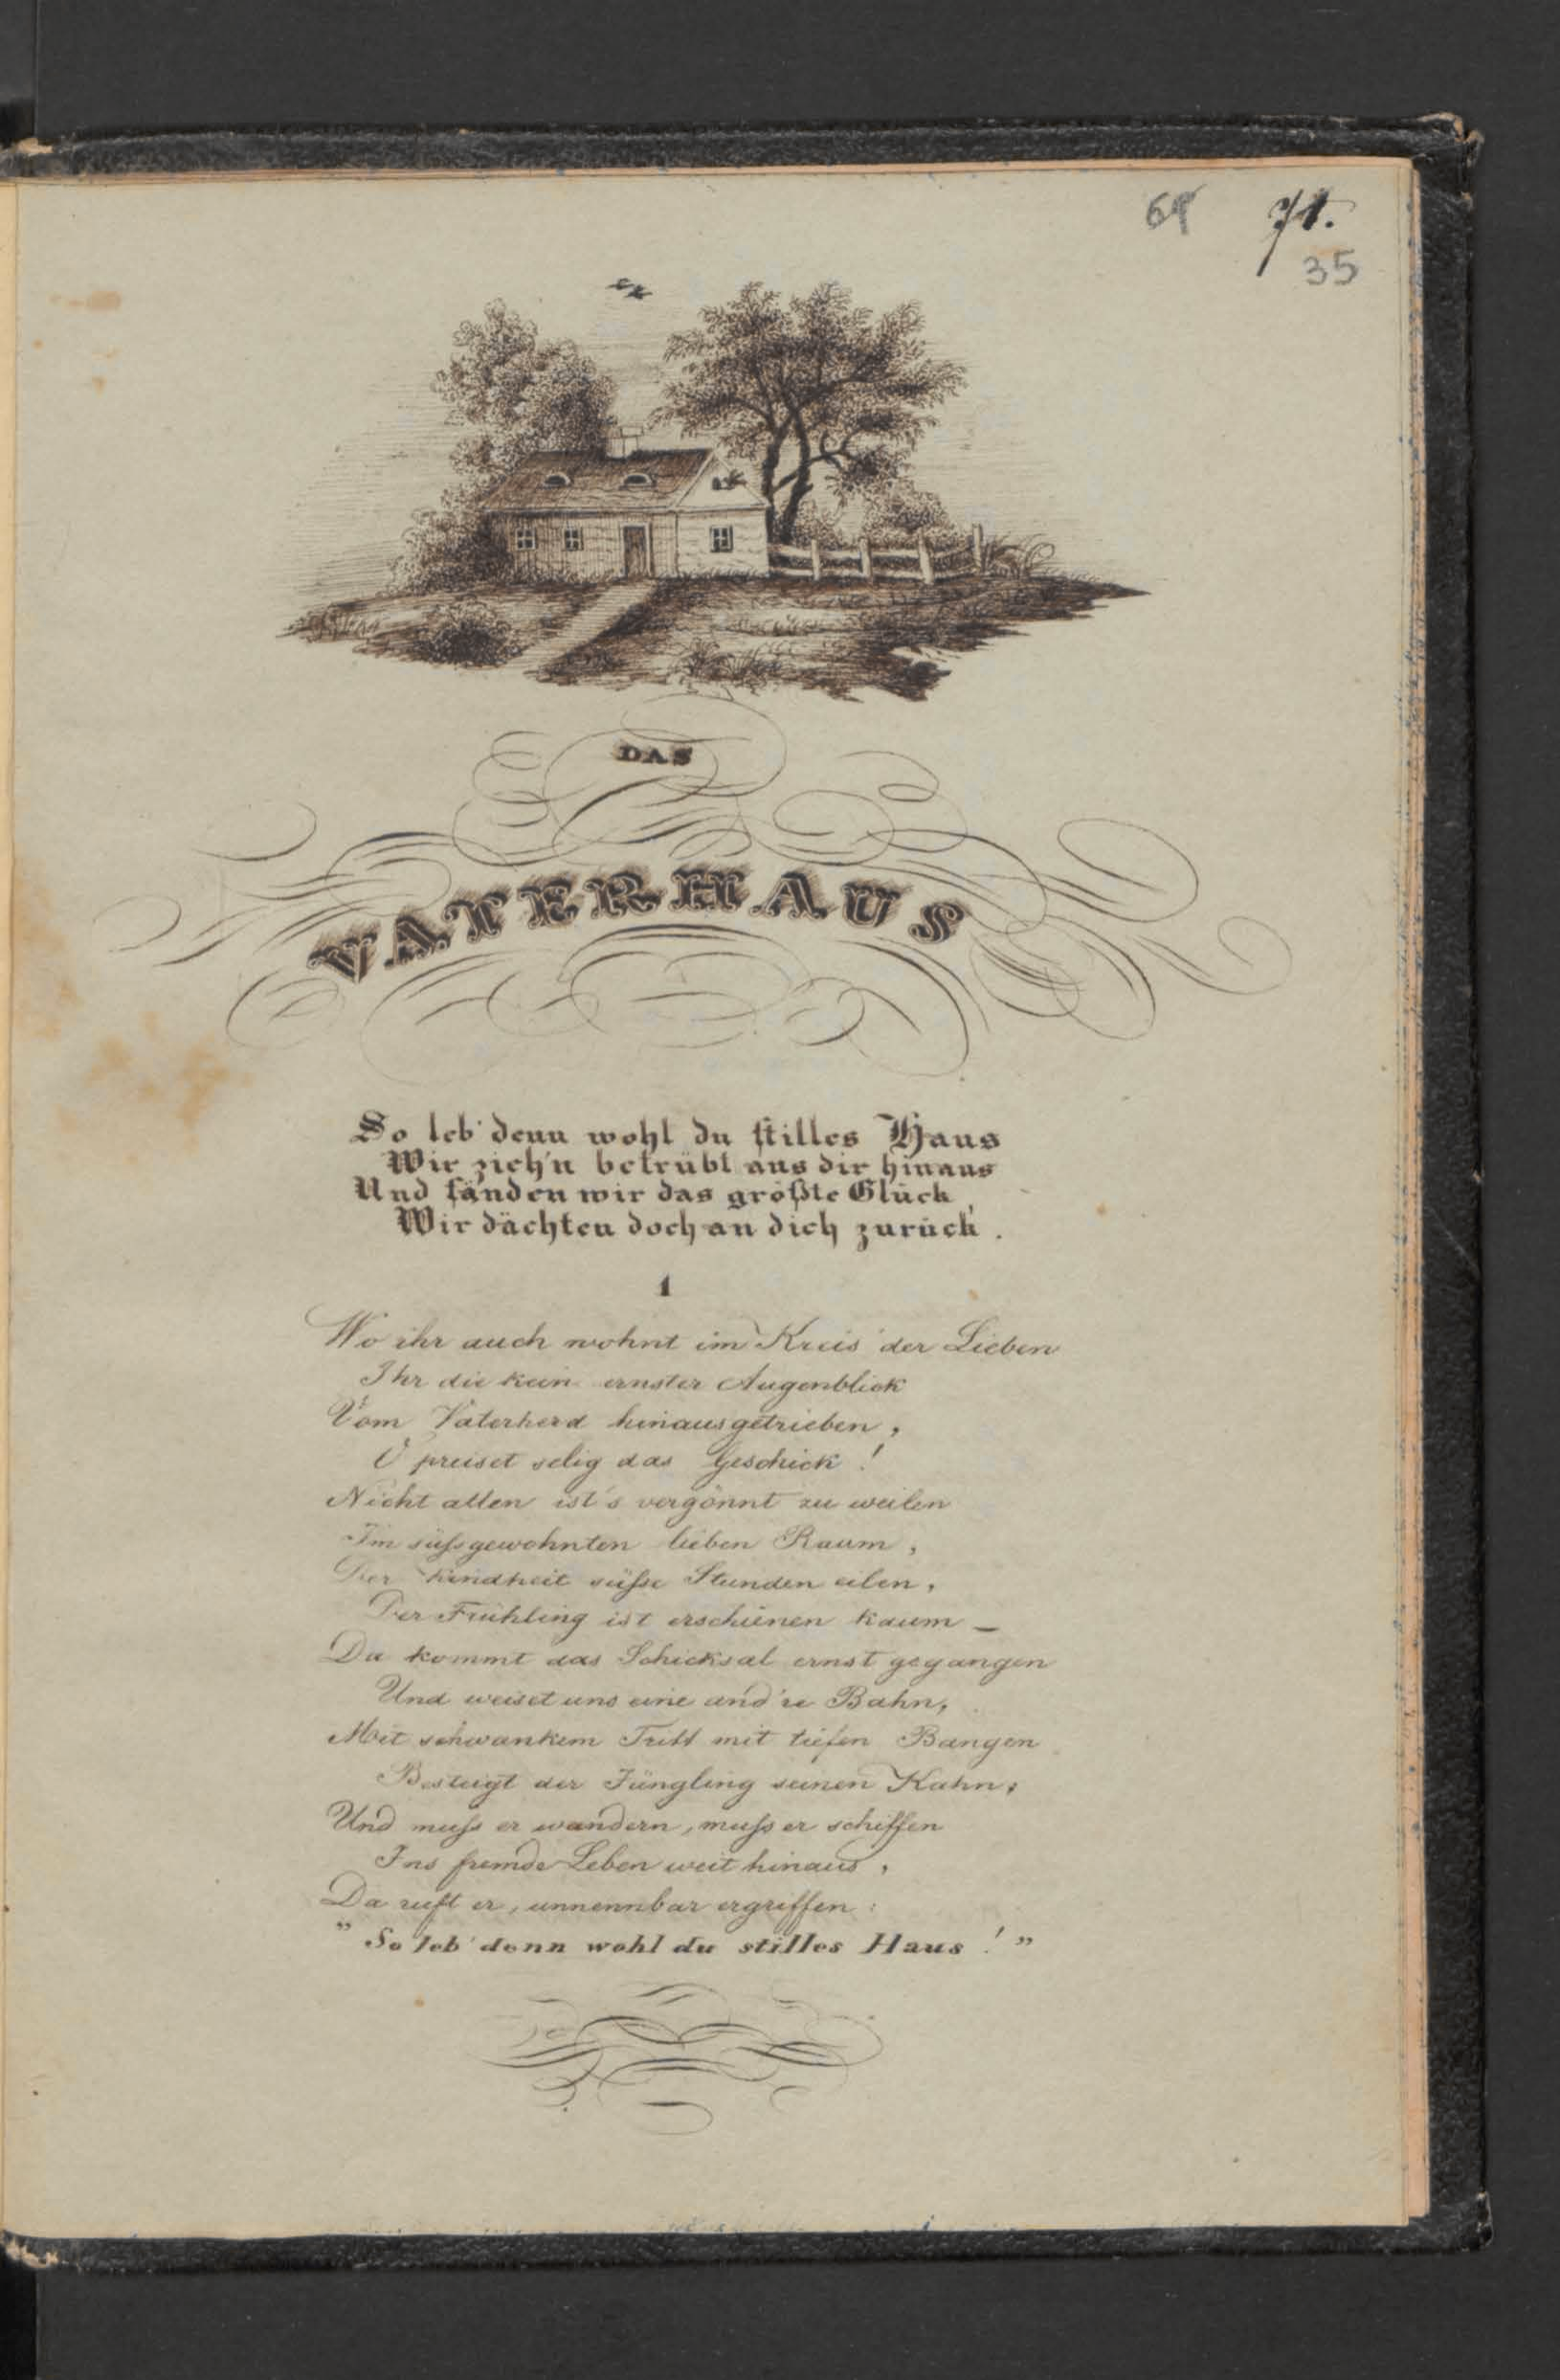 69 71.
35
DAS
VATERHAUS
So leb' denn wohl du stilles Haus
Wir zieh'n betrübt aus dir hinaus
Und fänden wir das größte Glück,
Wir dächten doch an dich zurück.
1
Wo ihr auch wohnt im Kreis der Lieben
Ihr die kein ernster Augenblick
Vom Vaterherd hinausgetrieben,
O preiset selig das Geschick!
Nicht allen ist's vergönnt zu weilen
Im süßgewohnten lieben Raum,
Der Kindheit süße Stunden eilen,
Der Frühling ist erschienen kaum –
Da kommt das Schicksal ernst gegangen
Und weiset uns eine and're Bahn,
Mit schwankem Tritt mit tiefen Bangen
Besteigt der Jüngling seinen Kahn;
Und muß er wandern, muß er schiffen
Ins fremde Leben weit hinaus,
Da ruft er, unnennbar ergriffen:
"So leb' denn wohl du stilles Haus!"